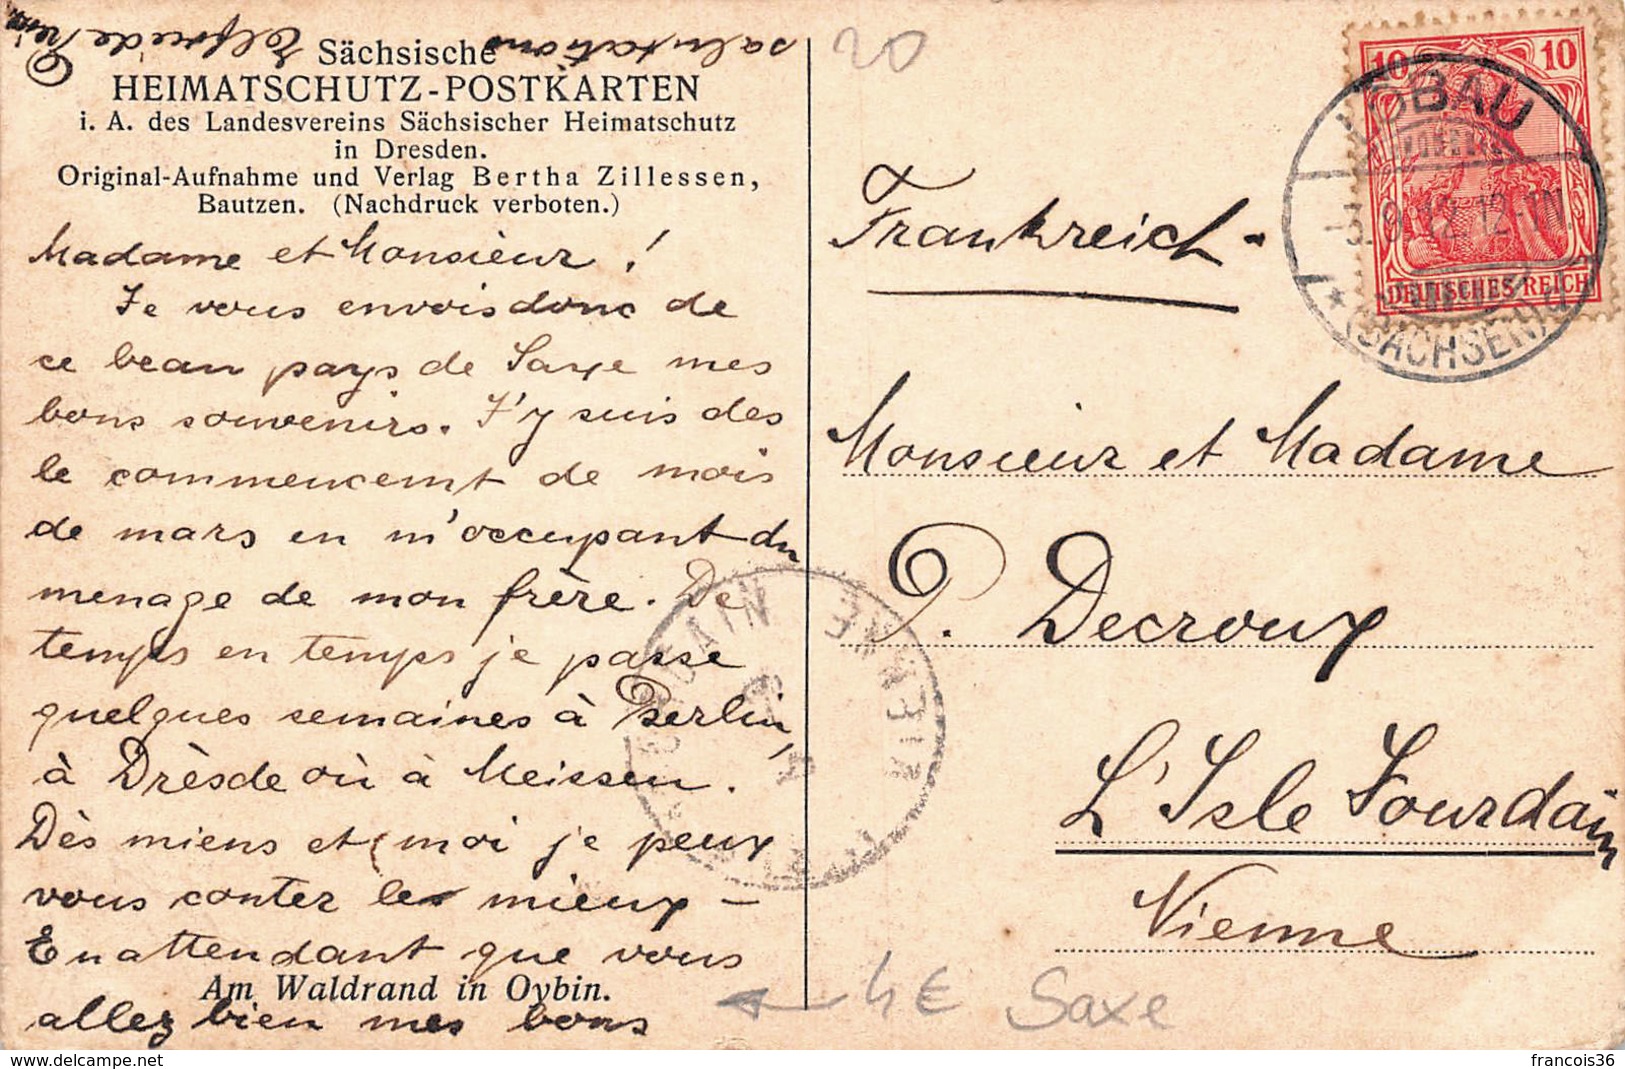 Sächsische
HEIMATSCHUTZ-POSTKARTEN
i. A. des Landesvereins Sächsischer Heimatschutz
in Dresden.
Original-Aufnahme und Verlag Bertha Zillessen,
Bautzen. (Nachdruck verboten.)
Madame et Monsieur !
Je vous envois donc de
ce beau pays de Saxe mes
bons souvenirs. J'y suis des
le commencemt de mois
de mars en m'occupant du
menage de mon frère. De
temps en temps je passe
quelques semaines à Berlin,
à Drèsde où à Meissen.
Dès miens et moi je peux
vous conter le mieux –
En attendant que vous
Am Waldrand in Oybin.
allez bien mes bons
salutations
Elfriede
20
10 10
DEUTSCHES REICH
LÖBAU
3.9.12. 12-1N.
* (SACHSEN)
Frankreich.
Monsieur et Madame
P. Decroux
L'Isle Jourdain
Vienne
JOURDAIN
VIENNE
4€ Saxe
www.delcampe.net
francois36